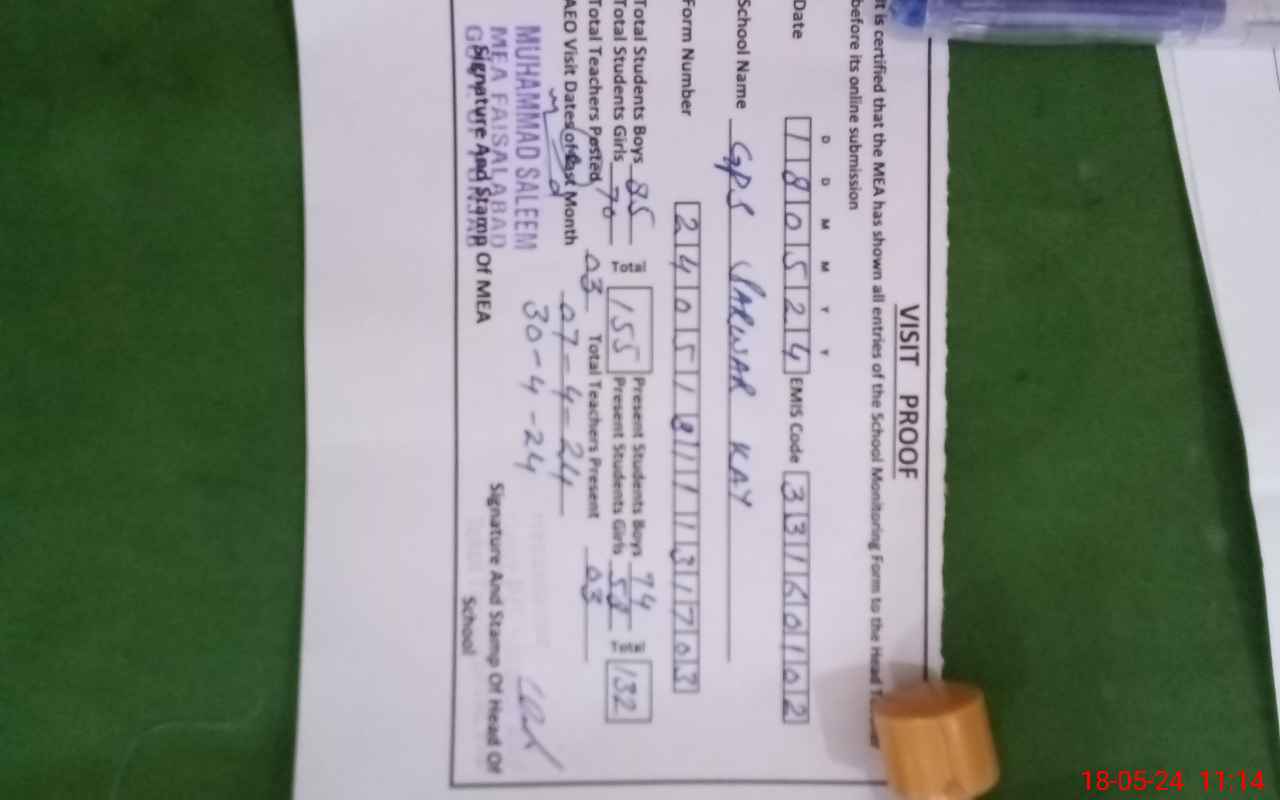 VISIT PROOF
It is certified that the MEA has shown all entries of the School Monitoring Form to the Head
before its online submission
D D M M Y Y
Date 180524 EMIS Code 33160102
School Name GPS SARWAR KAY
Form Number 24051811131703
Total Students Boys 85 Total 155 Present Students Boys 74 Total 132
Total Students Girls 70 Present Students Girls 58
Total Teachers Posted 03 Total Teachers Present 03
AEO Visit Dates of Last Month 07-4-24
30-4-24
MUHAMMAD SALEEM
MEA FAISALABAD
GOVT. OF PUNJAB
Signature And Stamp Of MEA
Signature And Stamp Of Head Of School
18-05-24 11:14